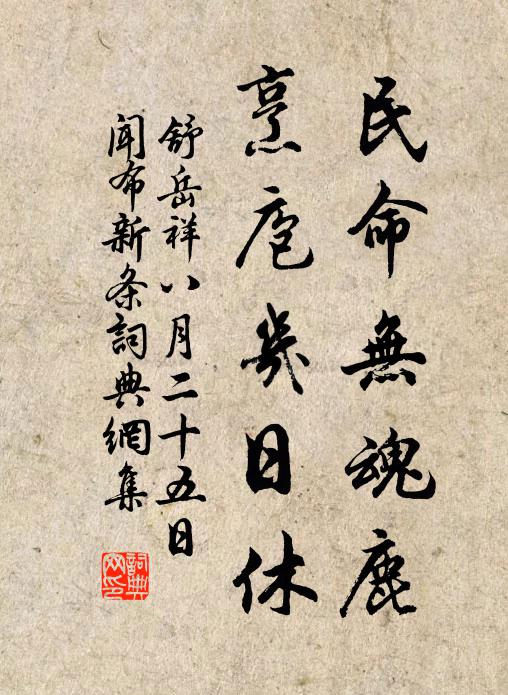 民命無魂鹿
烹庖幾日休
舒岳祥八月二十五日
聞布新条詞典網集
詞典
网印